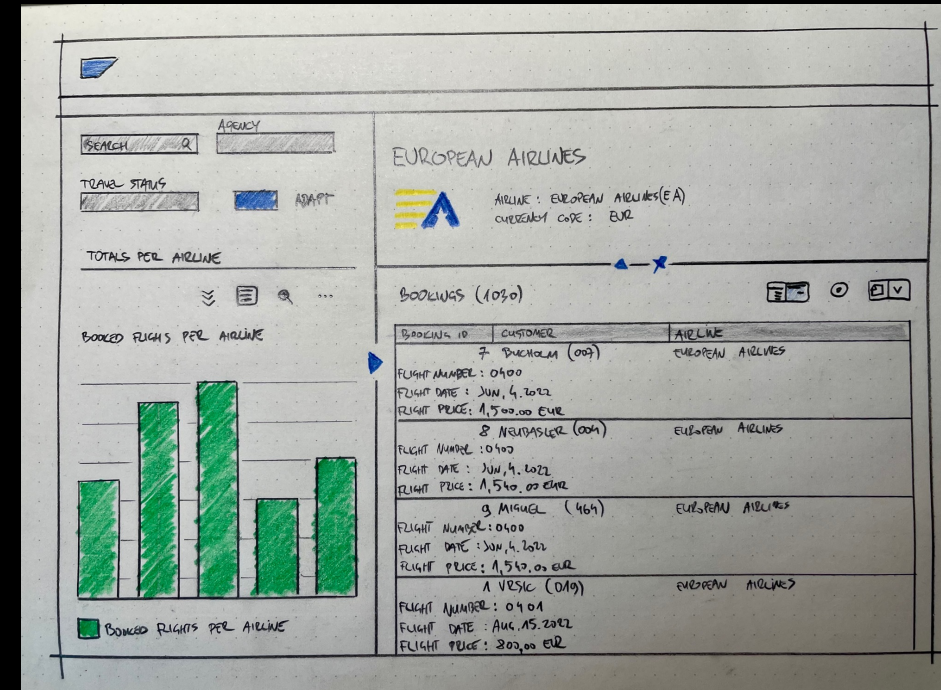 SEARCH
AGENCY
TRAVEL STATUS
ADAPT
TOTALS PER AIRLINE
...
BOOKED FLIGHS PER AIRLINE
BOOKED FLIGHTS PER AIRLINE
EUROPEAN AIRLINES
AIRLINE : EUROPEAN AIRLINES(EA)
CURRENCY CODE : EUR
BOOKINGS (1030)
BOOKING ID CUSTOMER AIRLINE
7 BUCHOLM (007) EUROPEAN AIRLINES
FLIGHT NUMBER : 0400
FLIGHT DATE : JUN, 4. 2022
FLIGHT PRICE : 1,500.00 EUR
8 NEUBASLER (004) EUROPEAN AIRLINES
FLIGHT NUMBER : 0400
FLIGHT DATE : JUN, 4. 2022
FLIGHT PRICE : 1,540.00 EUR
9 MIGUEL (464) EUROPEAN AIRLINES
FLIGHT NUMBER : 0400
FLIGHT DATE : JUN, 4. 2022
FLIGHT PRICE : 1,540.00 EUR
1 VRSIC (019) EUROPEAN AIRLINES
FLIGHT NUMBER : 0401
FLIGHT DATE : AUG. 15. 2022
FLIGHT PRICE : 800,00 EUR